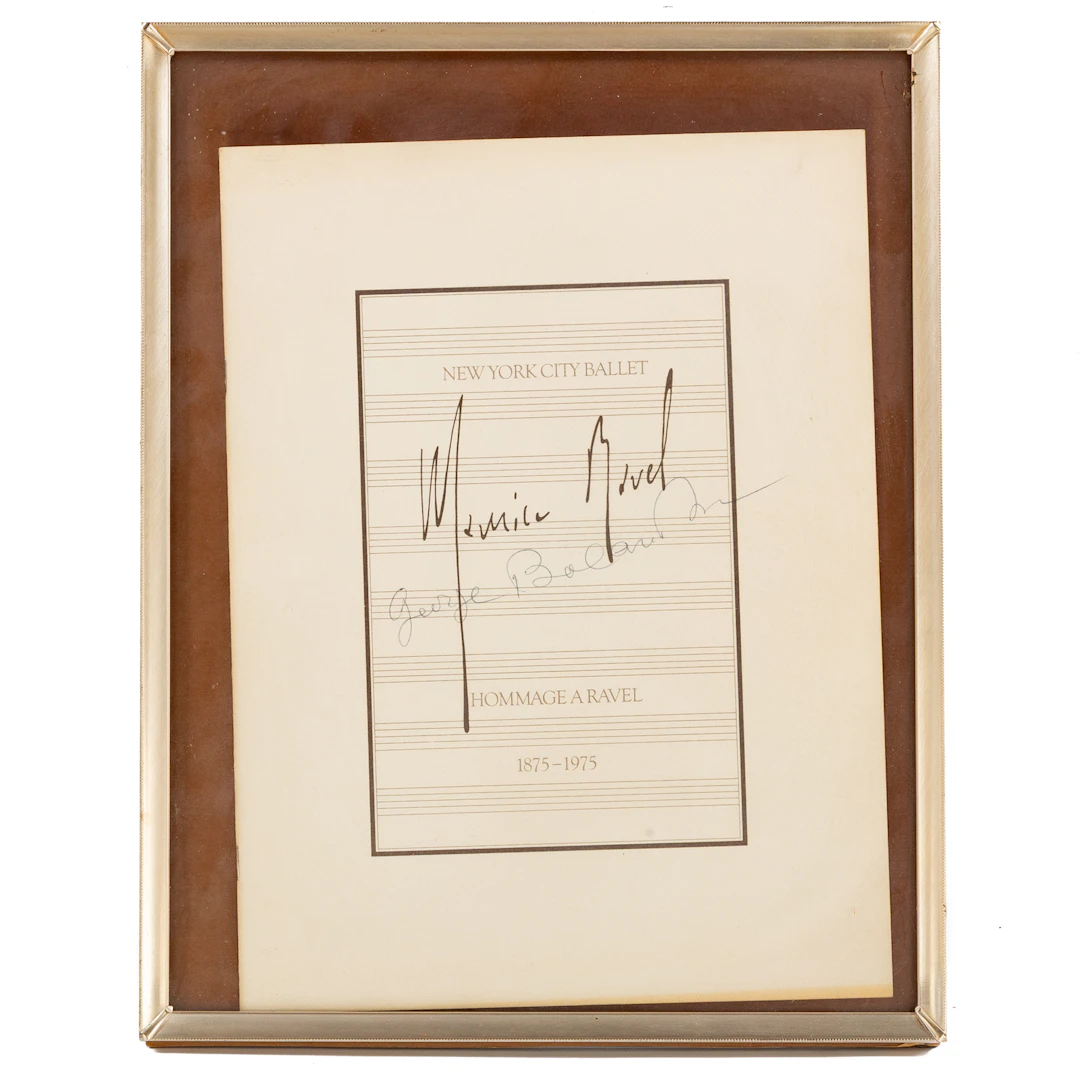 NEW YORK CITY BALLET
Maurice Ravel
George Balanchine
HOMMAGE A RAVEL
1875–1975